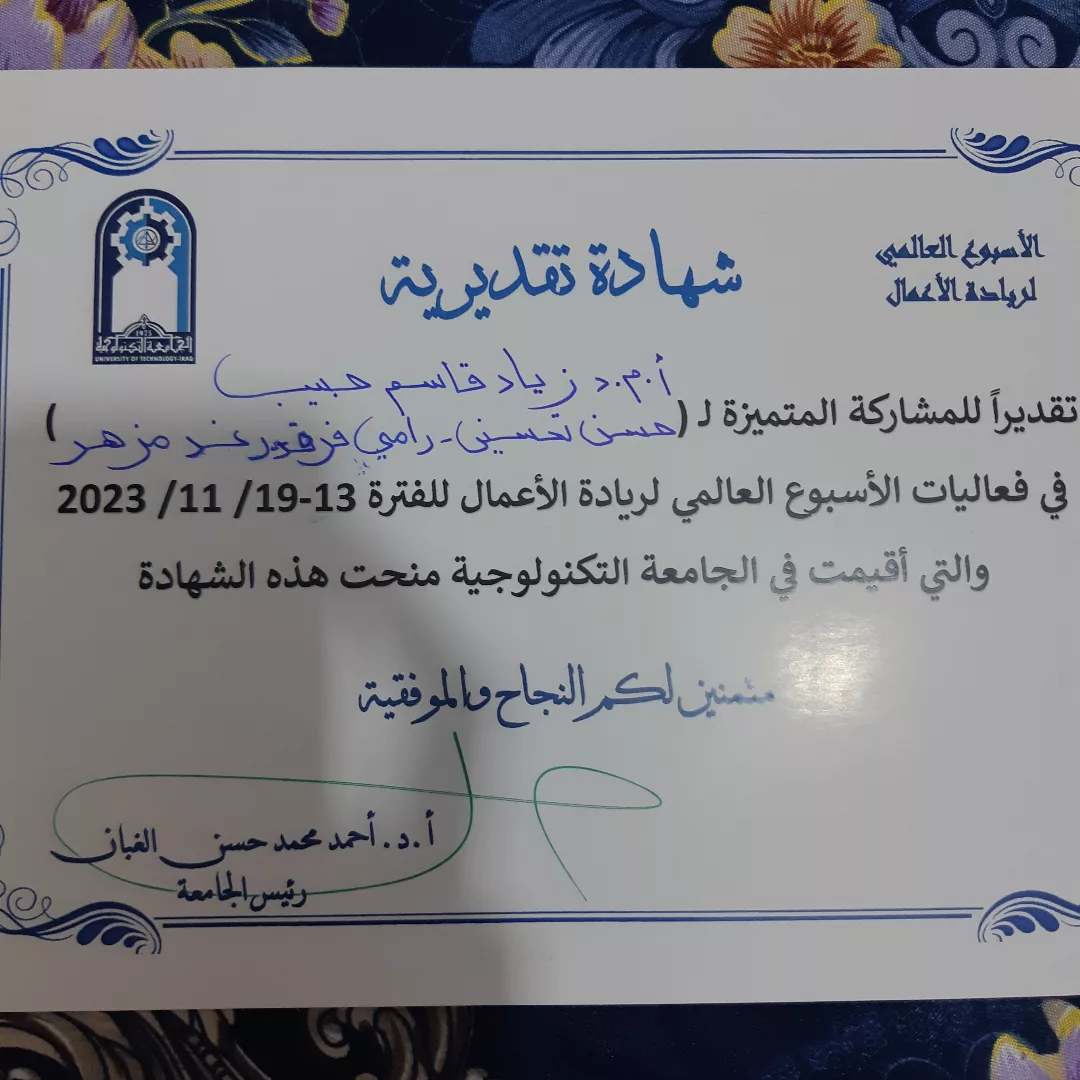 الأسبوع العالمي
لريادة الأعمال
1975
الجامعة التكنولوجية
UNIVERSITY OF TECHNOLOGY-IRAQ
شهادة تقديرية
أ.م.د زياد قاسم حبيب
تقديراً للمشاركة المتميزة لـ (حسن تحسين - رامي فرقد رغد مزهر)
في فعاليات الأسبوع العالمي لريادة الأعمال للفترة 13-19/ 11/ 2023
والتي أقيمت في الجامعة التكنولوجية منحت هذه الشهادة
متمنين لكم النجاح والموفقية
أ.د. أحمد محمد حسن الغبان
رئيس الجامعة